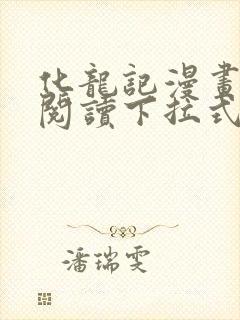 化龍記漫畫
閱讀下拉式
潘瑞雯